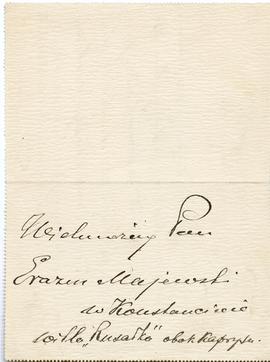 Wielmożny Pan
Erazm Majewski
w Konstancinie
willa „Rusałka” obok Kaprysu.